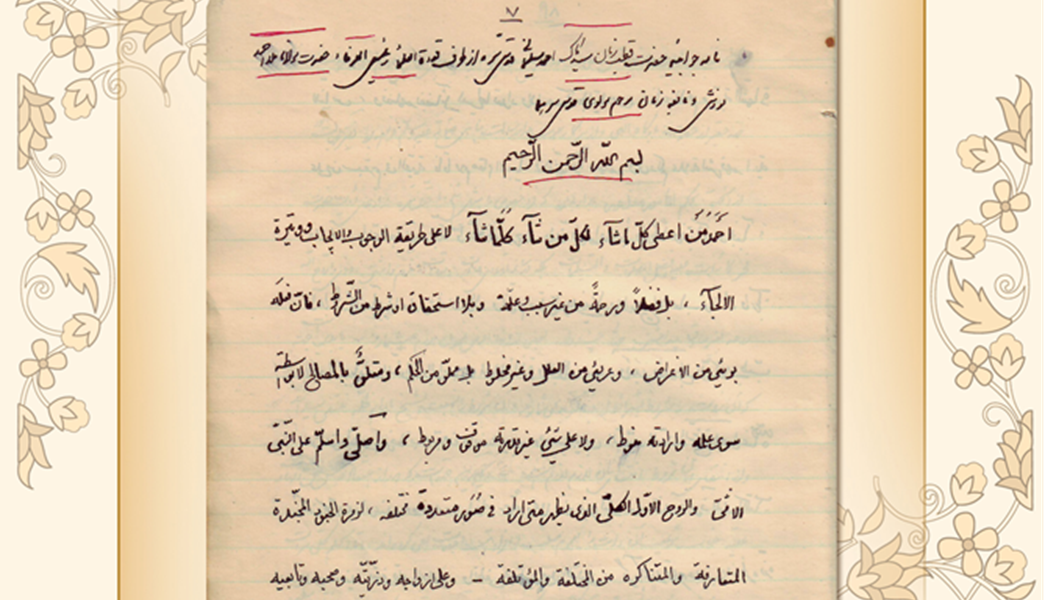 ٧
نامه جوابیه حضرت قطب زمان سید پاک احمد سلیمانی قدس سره از طرف قدوة العلماء رئیس العرفاء حضرت مولانا ملا احمد
و نابغه زمان مرحوم مولوی قدس سرهما
بسم الله الرّحمن الرّحیم
أحمدُ مَن أعطی کلّ ما شآء لکلّ من شآء کُلّما شآء لا علی طریقة الوجوب والایجاب و وتیرة
الالجآء ، بل فضلاً ورحمةً من غیر سبب وعلّة وبلا استحقاق او شرط من الشّرط ، فانّ فعله
بریئ من الأغراض ، وعریّ من العلل وغیر مخلوط بل مملوّ من الحکم ، ومتلقّ بالمصالح لا بواسطة
سوی علمه وارادته منوط ، ولا علی شیئ غیر قدرته موقوف ومربوط ، واُصلّی واسلّم علی النّبیّ
الامّیّ والروح الاوّل الکلّیّ الذی یظهر متی اراد فی صُوَر متعددة مختلفه ، لزمرة الجنود المجنّدة
المتعارفة والمتناکره من المختلفة والمؤتلفة وعلی ازواجه وذرّیّته وصحبه وتابعیه